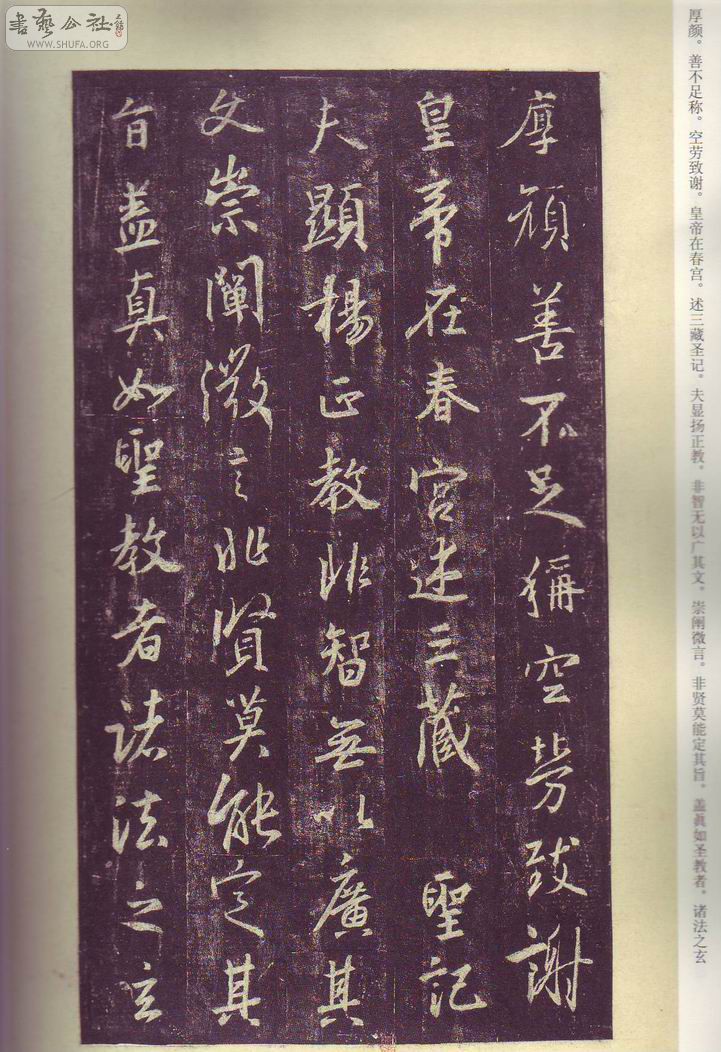 書藝公社
WWW.SHUFA.ORG
厚颜。善不足称。空劳致谢。皇帝在春宫。述三藏圣记。夫显扬正教。非智无以广其文。崇阐微言。非贤莫能定其旨。盖真如圣教者。诸法之玄
厚顏善不足稱空勞致謝
皇帝在春宮述三藏 聖記
夫顯揚正教非智無以廣其
文崇闡微言非賢莫能定其
旨蓋真如聖教者諸法之玄